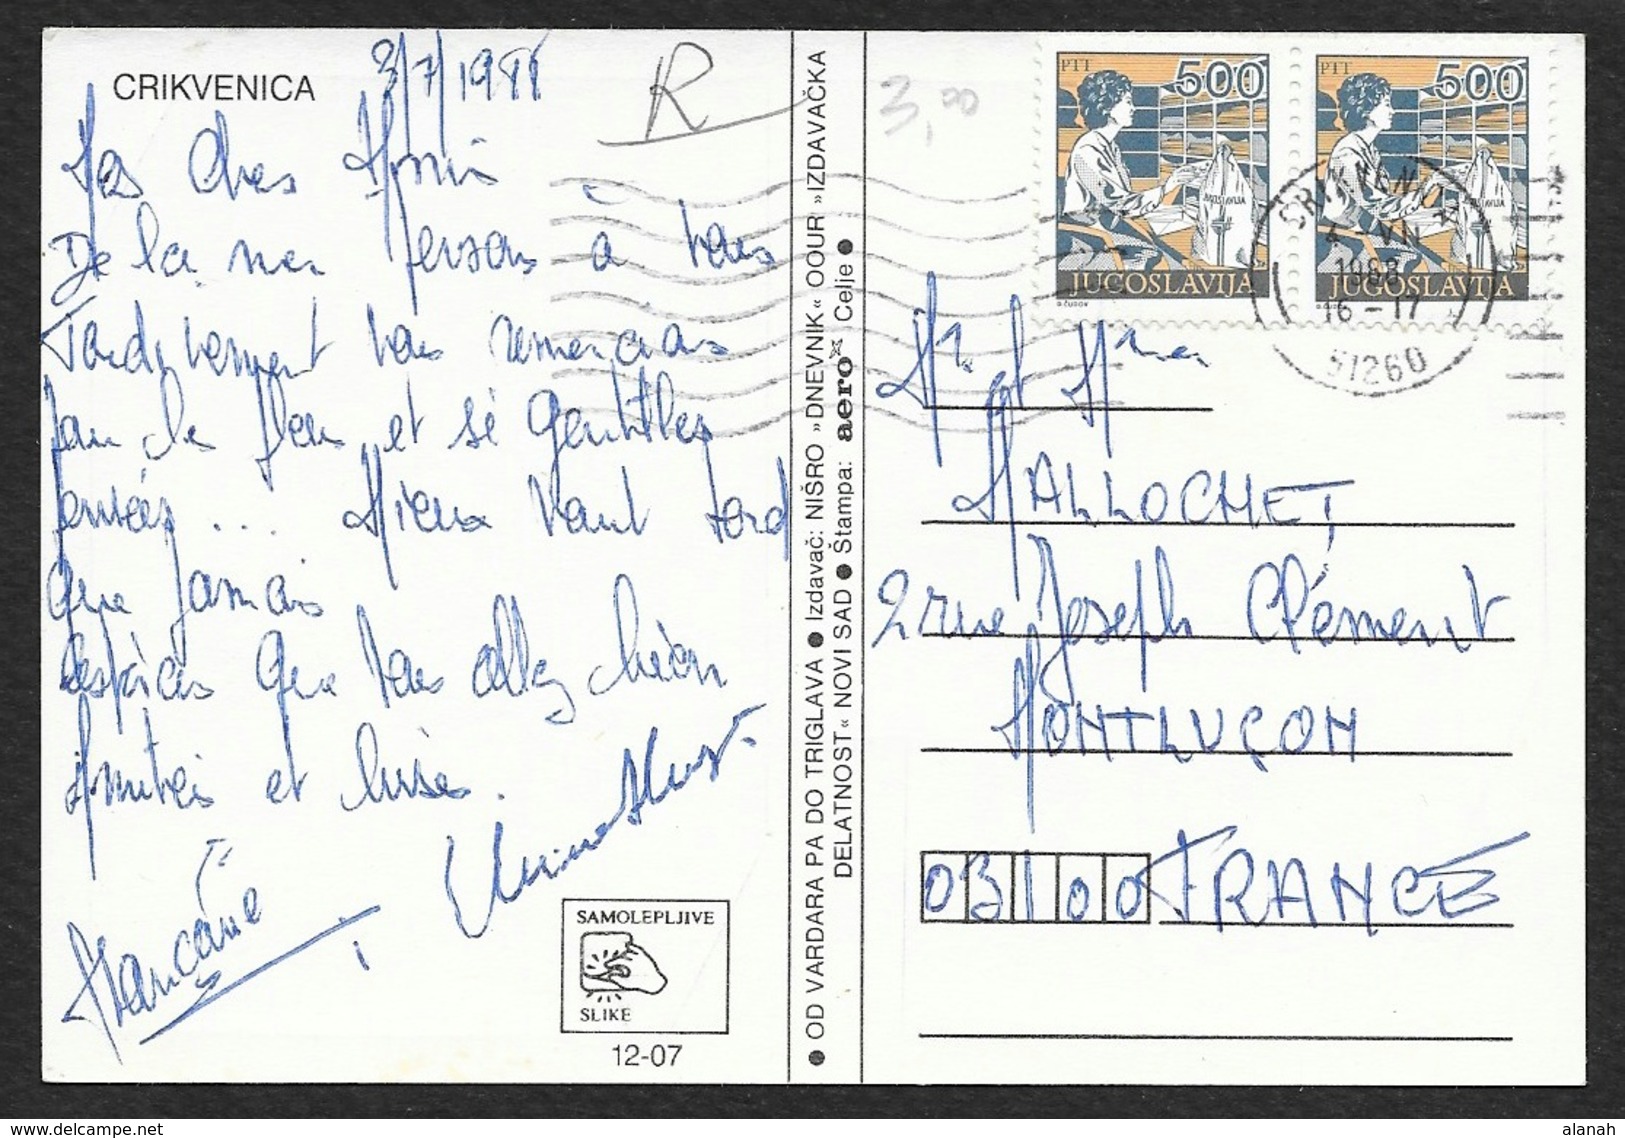 CRIKVENICA
3/7/1988
R
3,00
PTT 500
JUGOSLAVIJA
PTT 500
JUGOSLAVIJA
CRIKVENICA
4 VII
1988
16 - 17
51260
De la mer pensons à vous
Tardivement vous remercions
pour les fleurs et si gentilles
pensées ... Mieux vaut tard
que jamais
espérons que vous allez bien
Amitiés et bises.
Françoise
● OD VARDARA PA DO TRIGLAVA ● Izdavač: NIŠRO »DNEVNIK« OOUR »IZDAVAČKA
DELATNOST« NOVI SAD ● Štampa: aero Celje ●
SAMOLEPLJIVE
SLIKE
12-07
Mr et Mme
MALLOCHET
2 rue Joseph Clément
MONTLUÇON
03100 FRANCE
www.delcampe.net
alanah